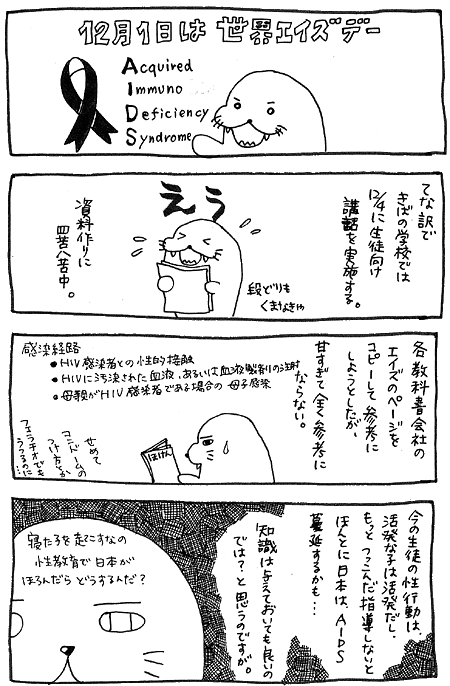 12月1日は 世界エイズデー
Acquired
Immuno
Deficiency
Syndrome
てな訳で
きばの学校では
12/4に生徒向け
講話を実施する。
えぅ
段どりも
くまなきゃ
資料作りに
四苦八苦中。
各教科書会社の
エイズのページを
コピーして参考に
しようとしたが、
甘すぎて全く参考に
ならない。
感染経路
●HIV感染者との性的接触
●HIVに汚染された血液、あるいは血液製剤の注射
●母親がHIV感染者である場合の母子感染
ほけん
せめて
コンドームの
つけ方とか
フェラチオでも
うつるのに…
今の生徒の性行動は、
活発な子は活発だし、
もっとつっこんだ指導しないと
ほんとに日本は、AIDS
蔓延するかも…
知識は与えておいても良いの
では?と思うのですが。
寝た子を起こすなの
性教育で日本が
ほろんだらどうするんだ?